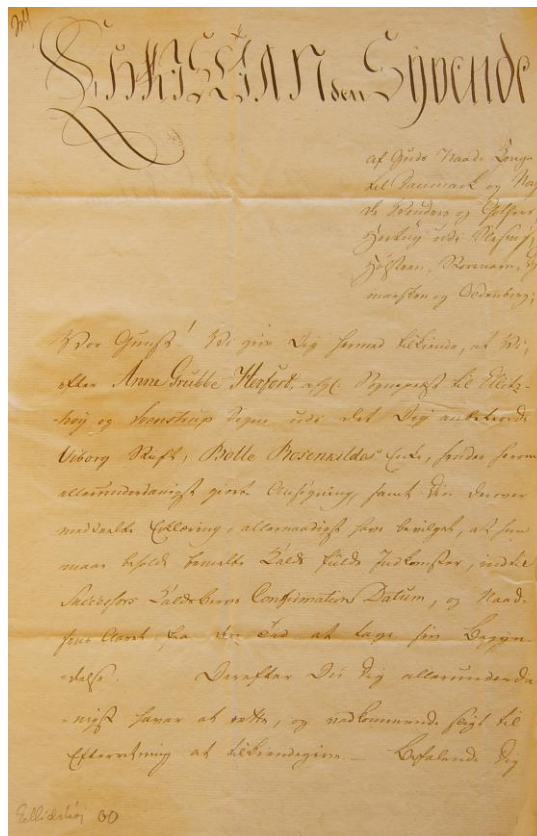 Christian den Syvende
af Guds Naade Konge
til Danmark og Nor
de Venders og Gothers
Hertug udi Slesvig,
Holsteen, Stormarn, D
marsken og Oldenborg;
Vor Gunst! Vi give Dig hermed tilkiende, at Vi,
efter Anne Grubbe Herfort, afg. Sognepræst til Ellitz-
høy og Svenstrup Sogne udi det Dig anbetroede
Viborg Stift, Bolle Rosenkildes Enke, hendes herom
allerunderdanigst giorte Ansøgning, samt Din derover
meddeelte Erklæring, allernaadigst have bevilget, at hun
maae beholde bemelte Kalds fulde Indkomster, indtil
Successors Kaldsbrevs Confirmations Datum, og Naad-
sens Aaret fra den Tid at tage sin Begyn-
delse. Derefter Du Dig allerunderda-
nigst haver at rette, og vedkommende sligt til
Efterretning at tilkiendegive. Befalende Dig
Ellidshøj